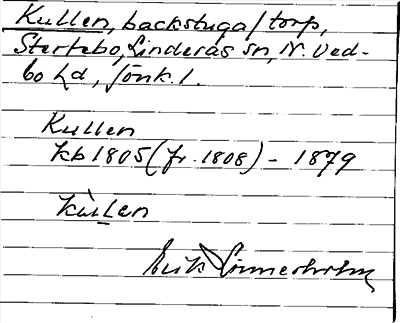 Kullen, backstuga/torp,
Stertebo, Linderås sn, N. Ved-
bo hd, Jönk.l.
Kullen
kb 1805 (fr. 1808) - 1879
kùllen
Erik Linnerholm